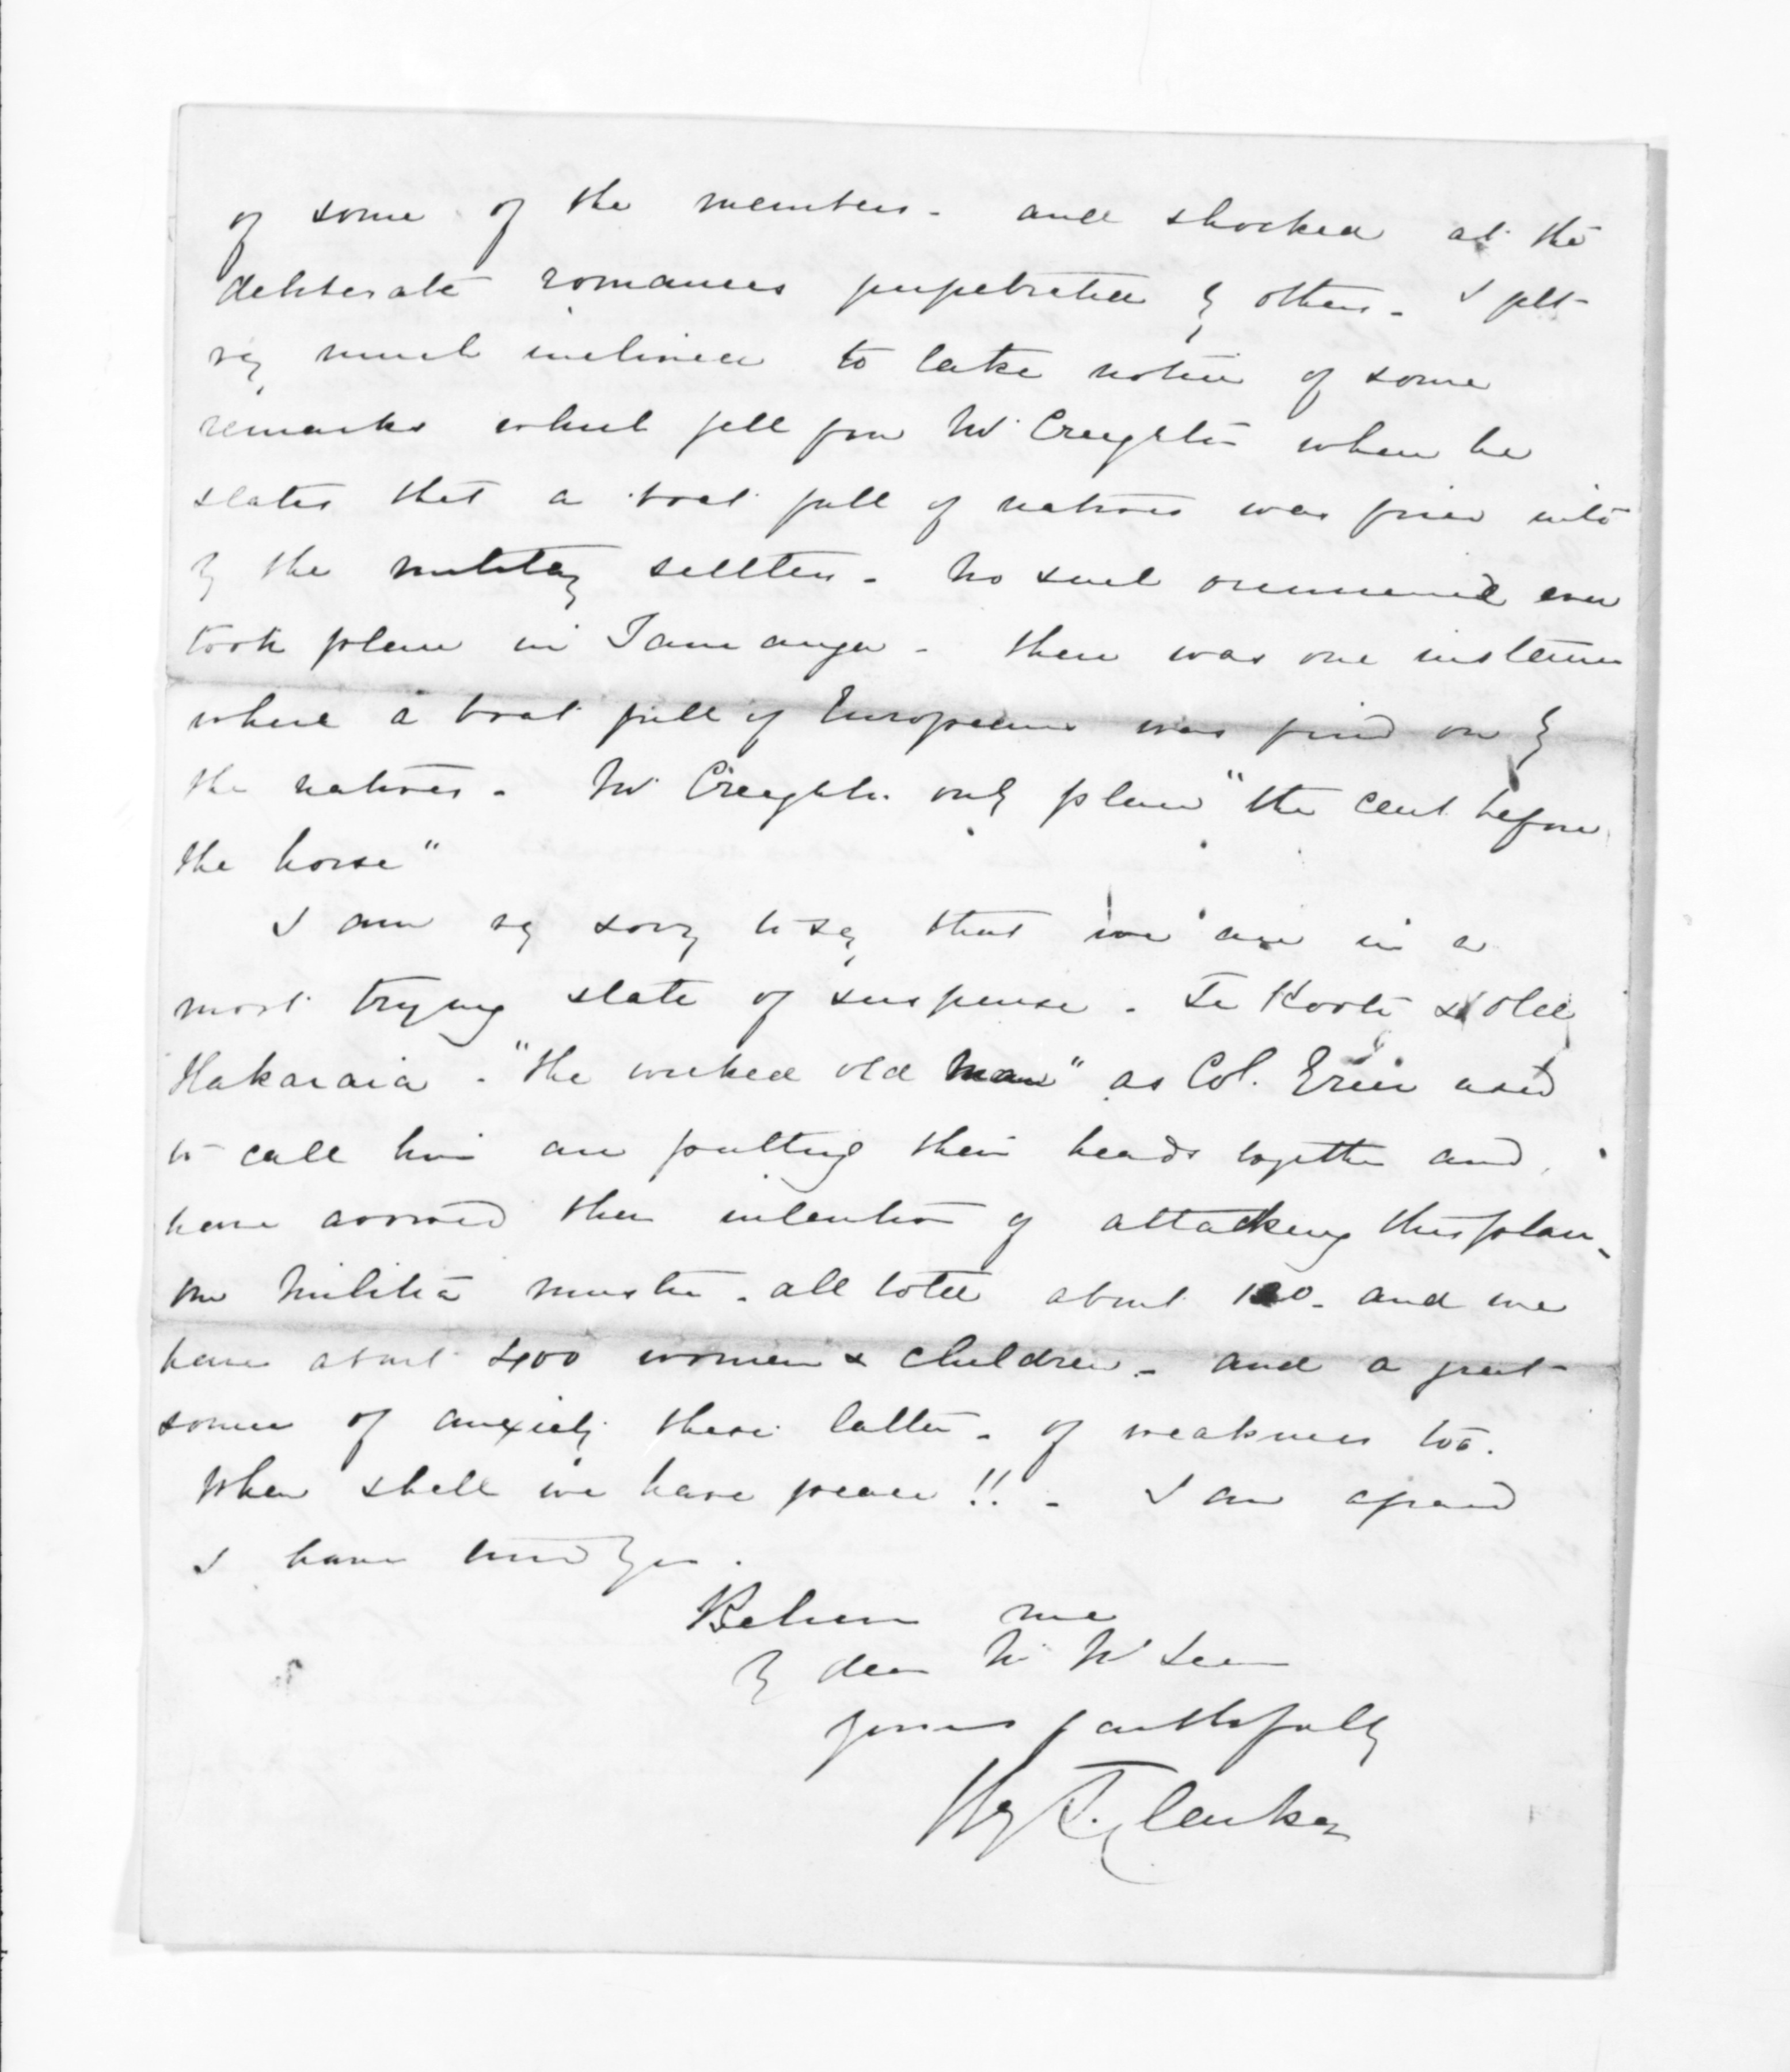 of some of the members - and shocked at the
deliberate romances perpetrated by others - I felt
very much inclined to take notice of some
remarks which fell from Mr Creighton when he
states that a boat full of natives was fired into
by the military settlers - No such occurrence ever
took place in Tauranga - there was one instance
where a boat full of Europeans was fired on by
the natives - Mr Creighton only places "the cart before
the horse"
I am very sorry to say that we are in a
most trying state of suspense - Te Kooti & old
Hakaraia - "the wicked old man" as Col. Greer used
to call him are putting their heads together and
have avowed their intention of attacking this place -
our Militia muster - all told about 120 - and we
have about 400 women & children - and a great
source of anxiety these latter - of weakness too.
When shall we have peace !! - I am afraid
I have tired you.
Believe me
My dear Mr McLean
Yours faithfully
Hy T. Clarke